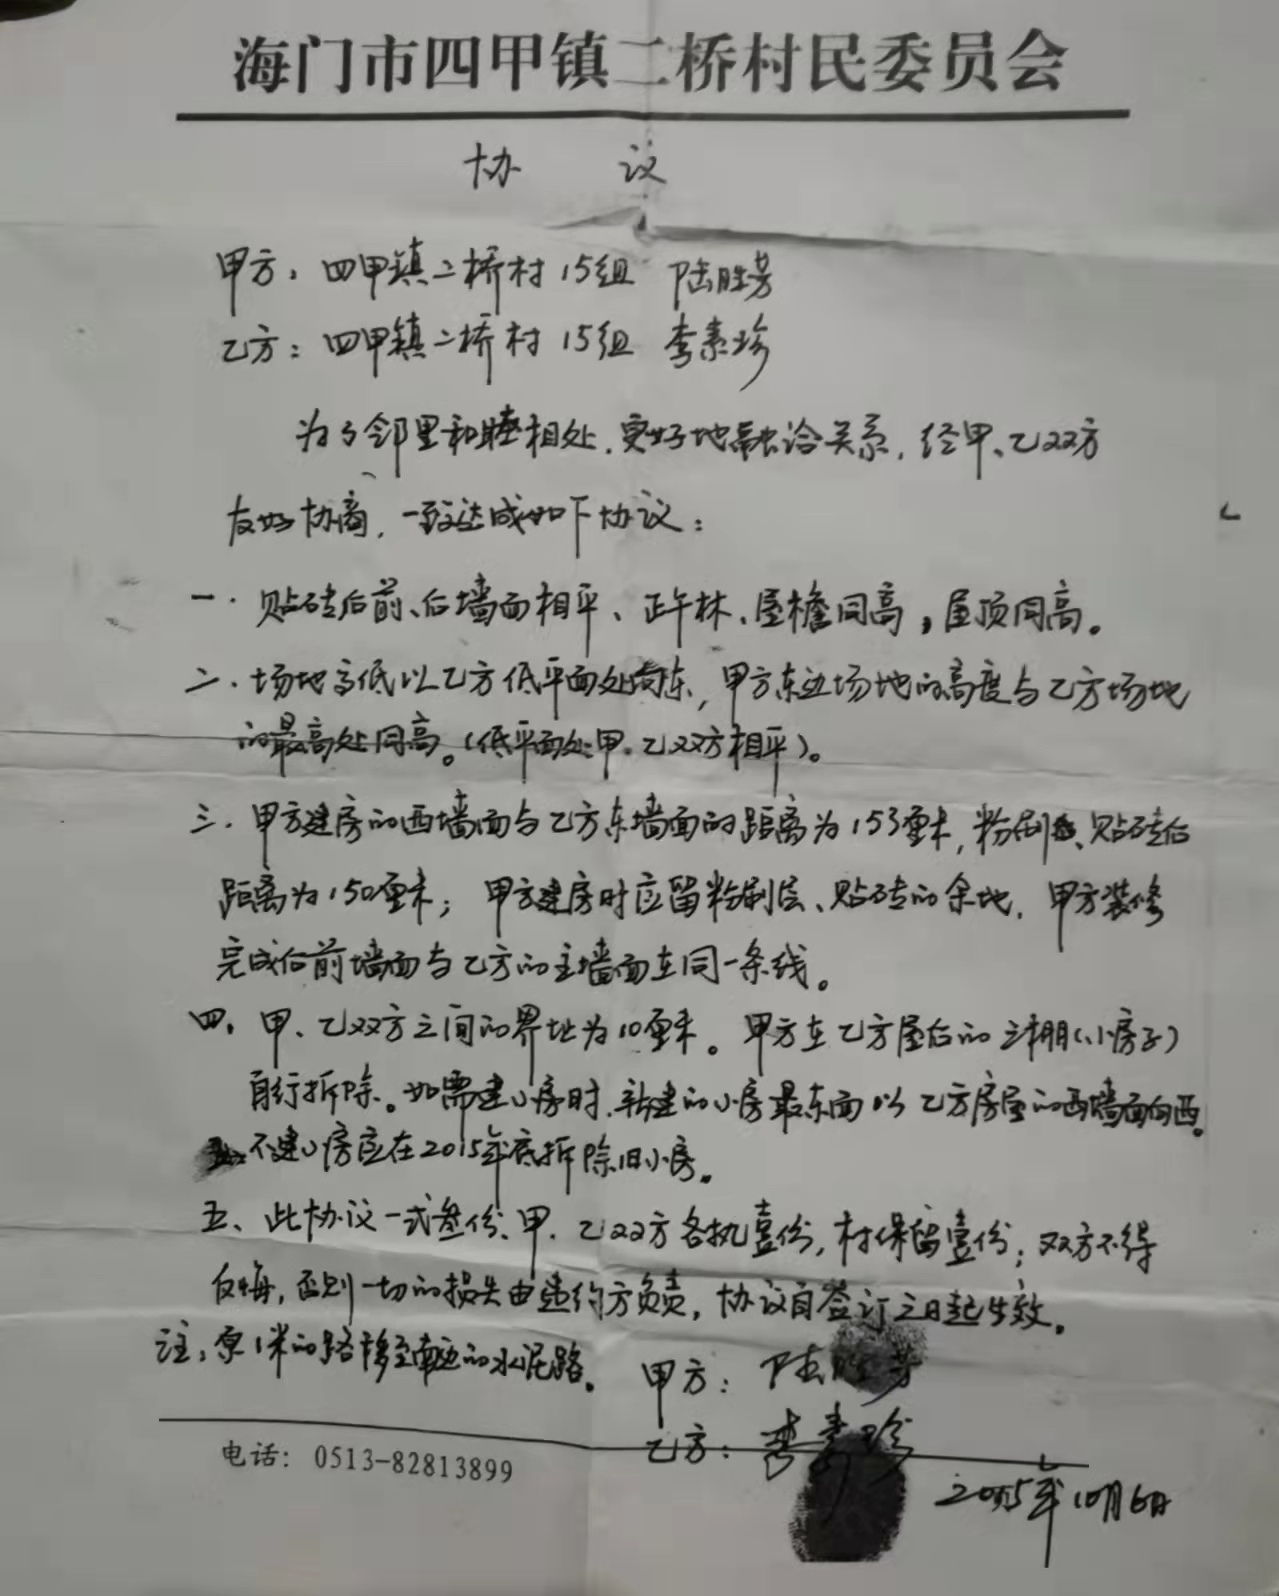 海门市四甲镇二桥村民委员会
协 议
甲方：四甲镇二桥村15组 陆胜芳
乙方：四甲镇二桥村15组 李素珍
为了邻里和睦相处，更好地融洽关系，经甲、乙双方
友好协商，一致达成如下协议：
一．贴砖后前、后墙面相平、正午林、屋檐同高，屋顶同高。
二．场地高低以乙方低平面处向东，甲方东边场地的高度与乙方场地
的最高处同高。（低平面处甲．乙双方相平）。
三．甲方建房的西墙面与乙方东墙面的距离为153厘米，粉刷、贴砖后
距离为150厘米；甲方建房时应留粉刷层、贴砖的余地，甲方装修
完成后前墙面与乙方的主墙面在同一条线。
四．甲、乙双方之间的界址为10厘米。甲方在乙方屋后的棚（小房子）
自行拆除。如需建小房时，新建的小房最东面以乙方房屋的西墙面向西。
不建小房应在2015年底拆除旧小房。
五、此协议一式叁份，甲．乙双方各执壹份，村保留壹份；双方不得
反悔，否则一切的损失由违约方负责，协议自签订之日起生效。
注：原1米的路移至南边的水泥路。
甲方：陆胜芳
乙方：李素珍
电话：0513-82813899
2015年10月6日